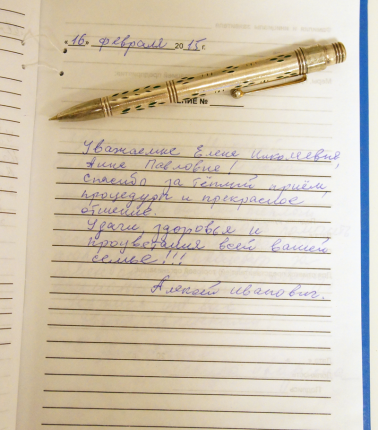 "16" февраля 2015 г.
ЕНИЕ №
Уважаемые Елена Николаевна,
Анна Павловна!
Спасибо за тёплый приём,
процедуры и прекрасное
отшение.
Удачи, здоровья и
процветания всей вашей
семье!!!
Алексей Иванович.